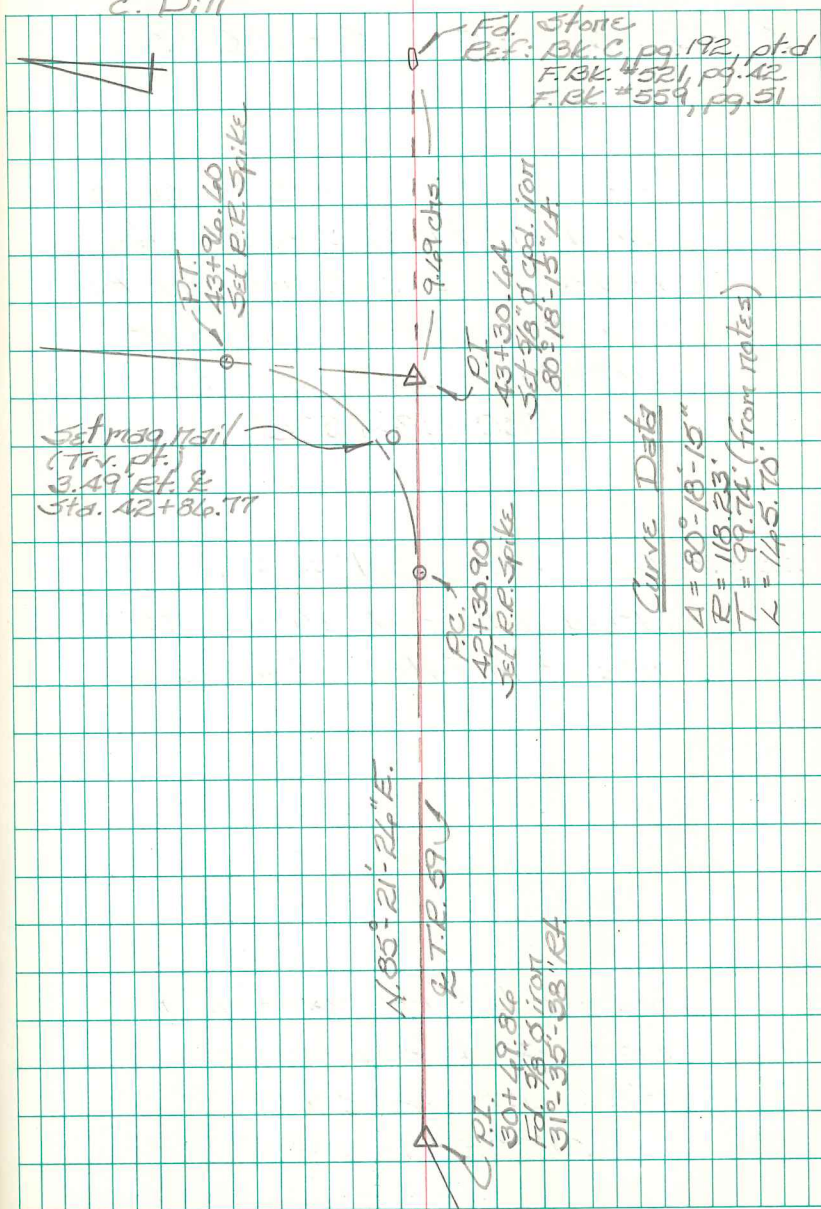 C. Dill
Fd. Stone
Ref: Bk. C, pg. 192, pt. d
F. Bk. #521, pg. 42
F. Bk. #559, pg. 51
P.T.
43+96.60
Set R.R. Spike
9.69 chs.
P.I.
43+30.64
Set 5/8" ø cpd. iron
80°-18'-15" Lt.
Set mag nail
(Trv. pt.)
3.49' Rt. ℄
Sta. 42+86.77
P.C.
42+30.90
Set R.R. Spike
Curve Data
Δ = 80°-18'-15"
R = 118.23'
T = 99.74' (from notes)
L = 165.70'
N. 85°-21'-26" E.
℄ T.R. 59
P.I.
30+69.86
Fd. 5/8" ø iron
31°-35'-38" Rt.